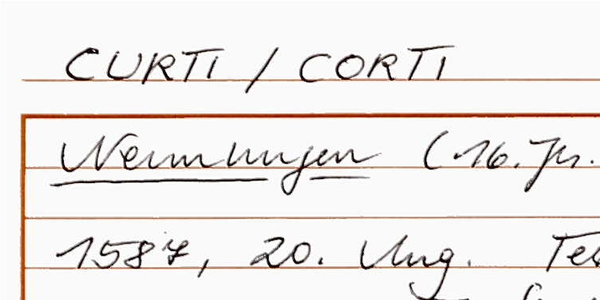 CURTI / CORTI
Nennungen (16. Jh.
1587, 20. Aug.